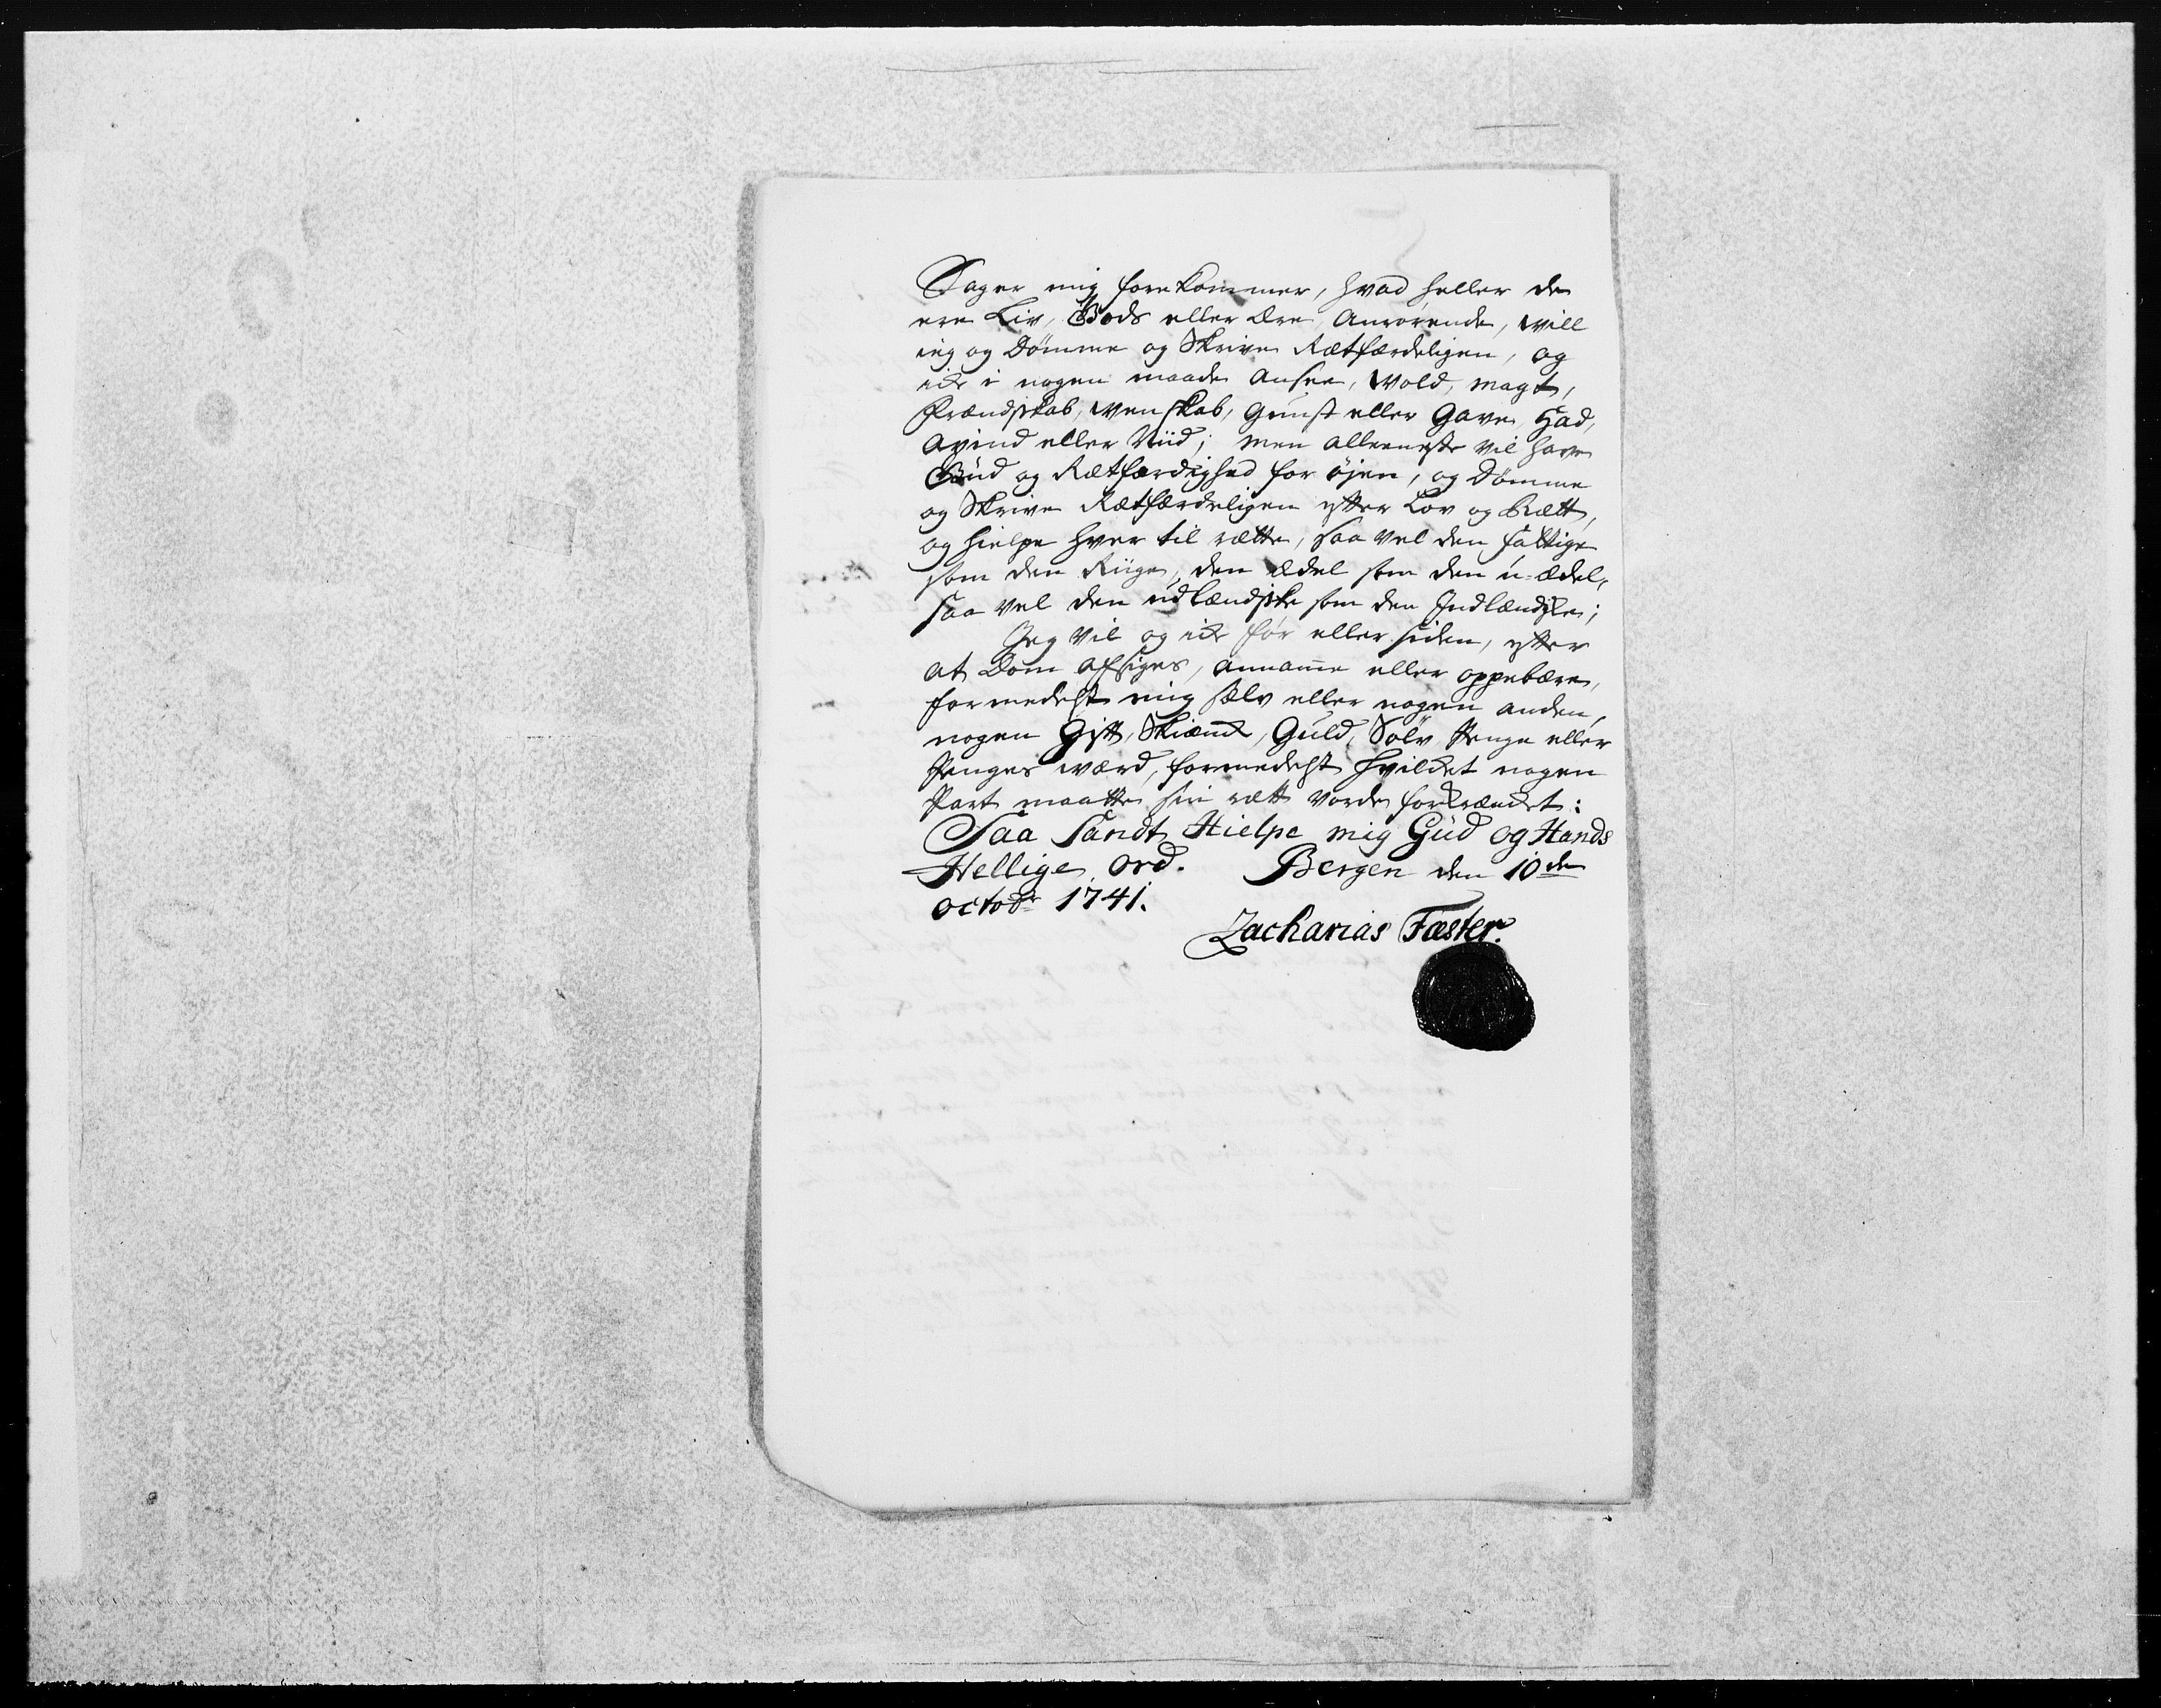 Sager mig forekommer, hvad heller de
ere Liv, Gods eller Ære Anrørende, will
ieg og Dömme og Skrive Rætfærdeligen, og
icke i nogen maade Ansee, Wold, magt,
Frændskab, Wenskab, Gunst eller Gave, Had,
Avind eller Niid; men alleeneste vil have
Gud og Rætfærdighed for öjen, og Dömme
og Skrive Rætfærdeligen efter Lov og Rætt,
og hielpe hver til rætte, saa vel den fattige
som den Riige, den ædel som den u-ædel,
saa vel den udlændske som den Indlændske;
Jeg vil og icke för eller siden, efter
at Dom afsiges, anname eller oppebære,
formedelst mig sælv eller nogen anden,
nogen Gift, Skiænck, Guld, Sölv Penge eller
Penges wærd, formedelst hvilcket nogen
Part maatte sin rætt vorde forkræncket:
Saa Sandt Hielpe mig Gud og Hands
Hellige ord. Bergen den 10de
octobr 1741.
Zacharias Fæster.